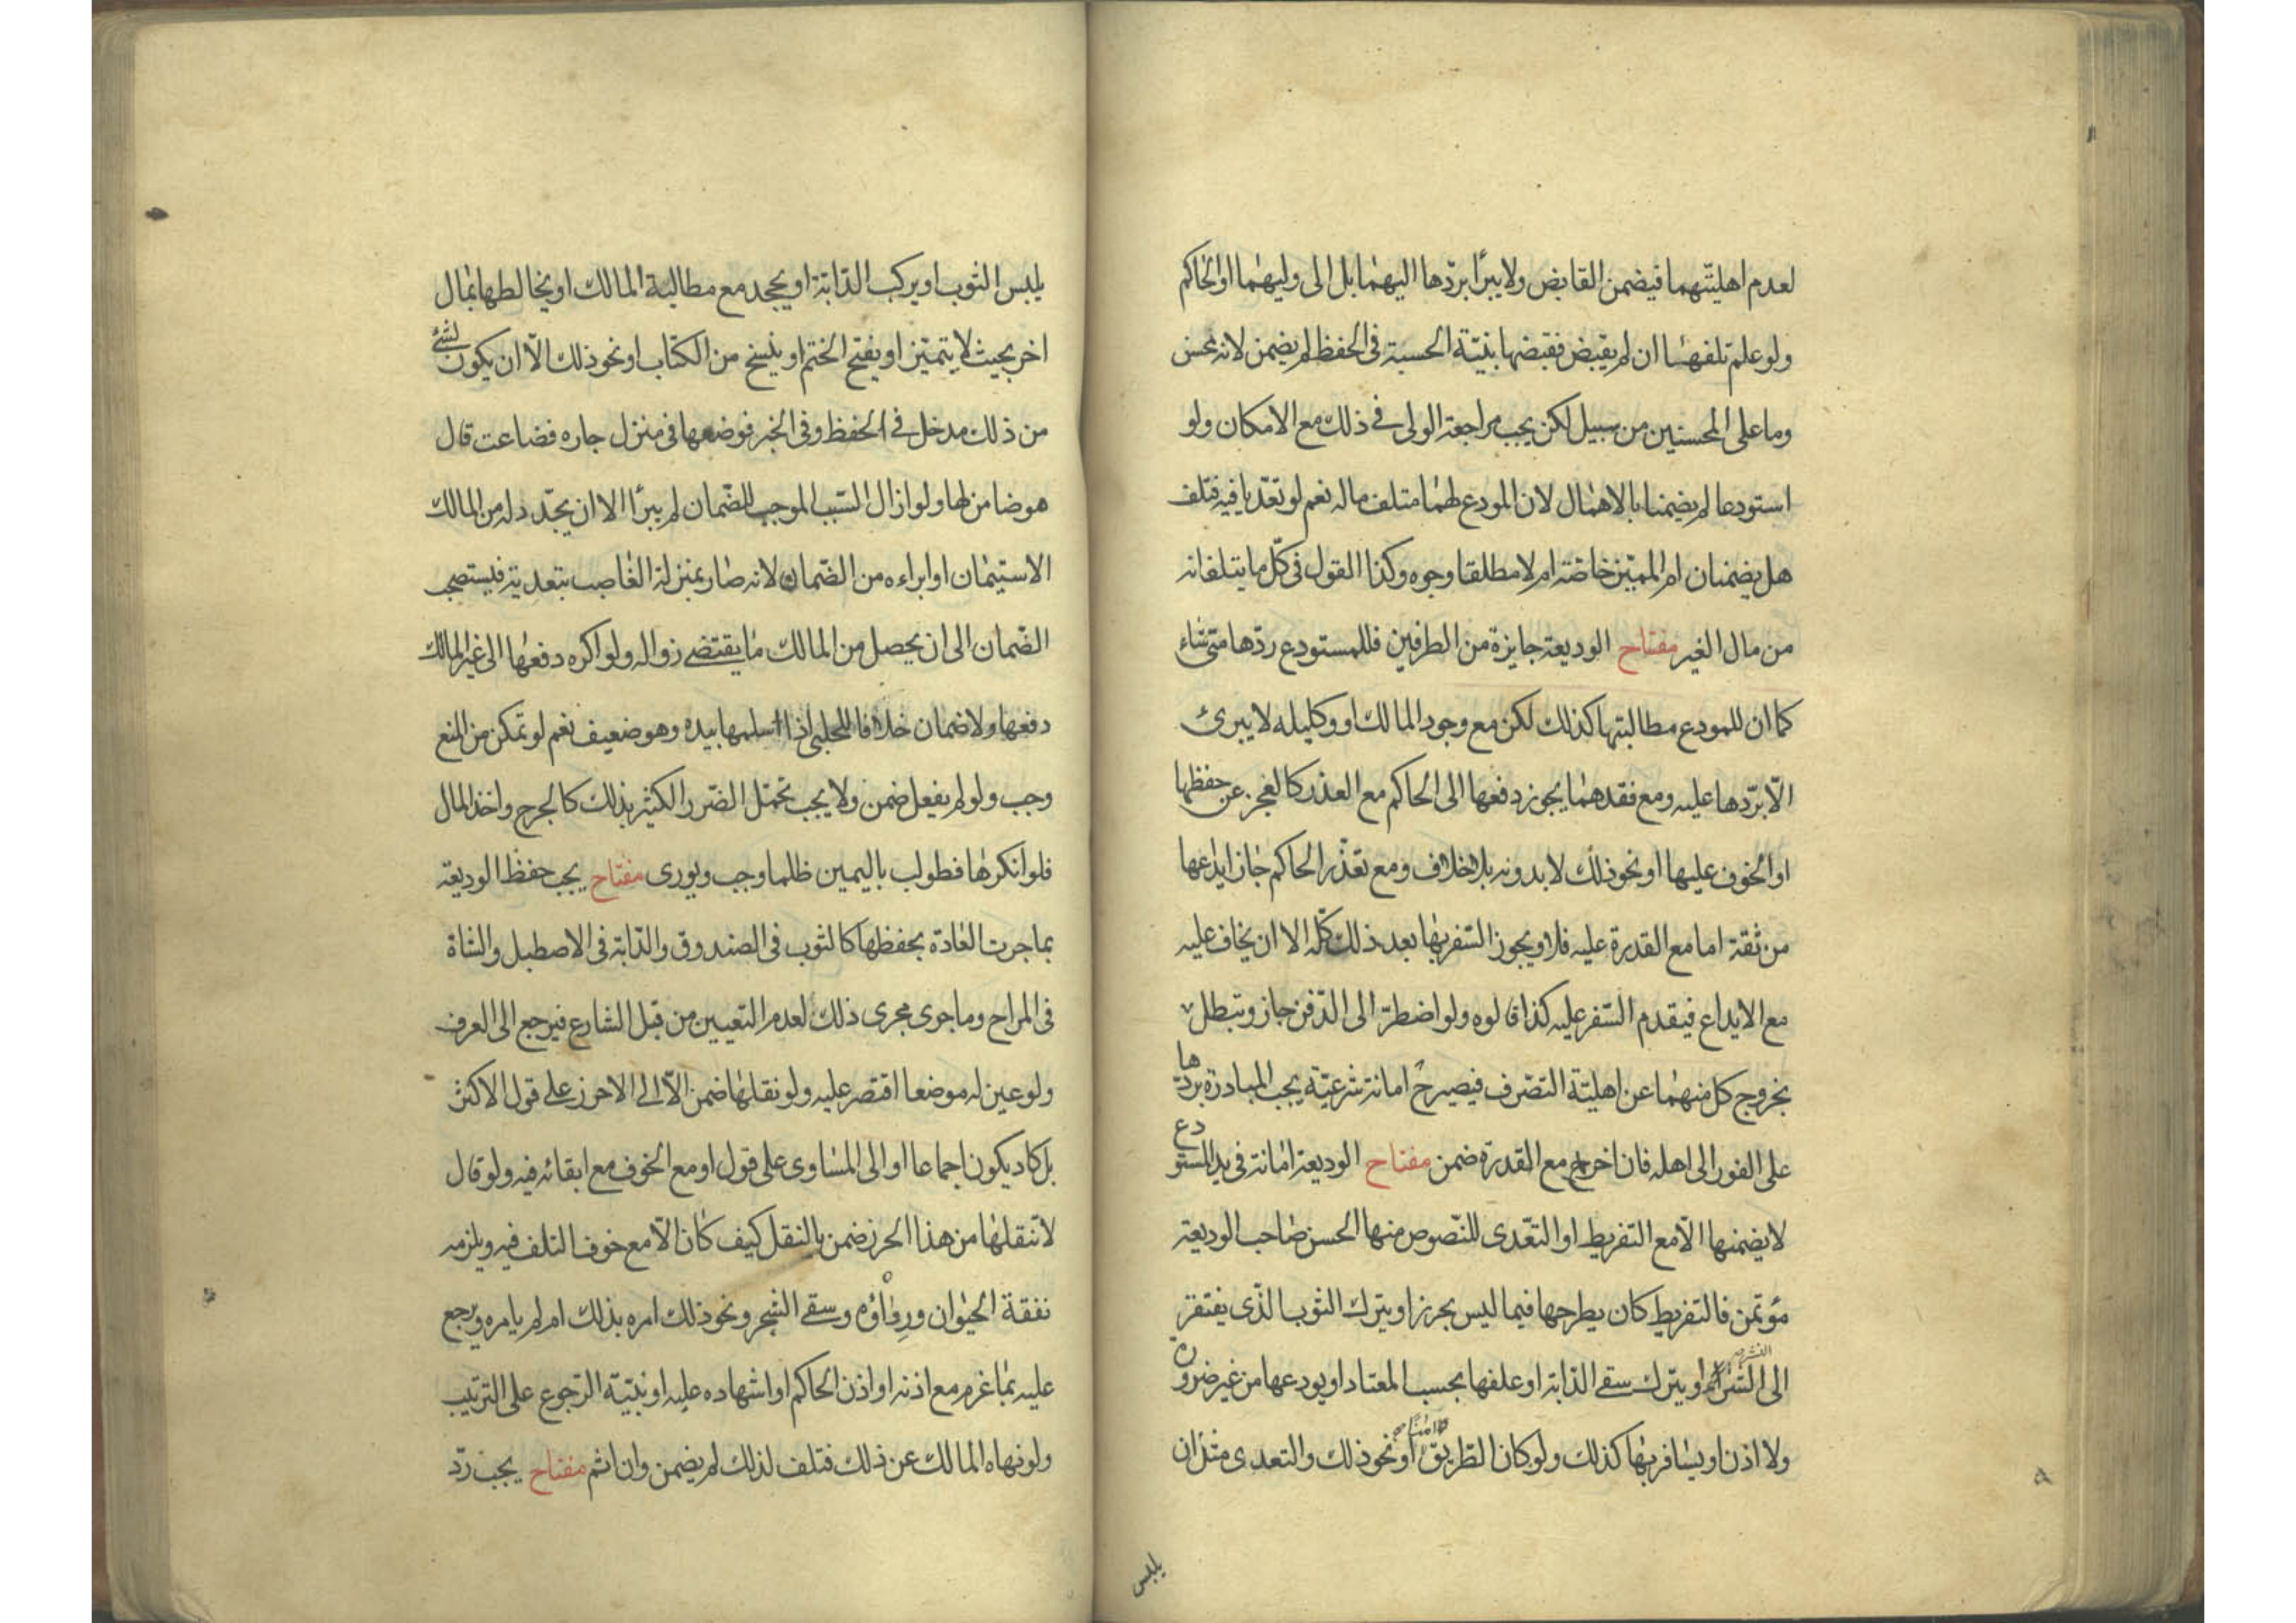 لعدم اهليتهما فيضمن القابض ولا يبرأ بردّها اليهما بل الى وليهما او الحاكم
ولو علم تلفهما ان لم يقبض فقبضها بنيّة الحسبة فى الحفظ لم يضمن لانه محسن
وما على المحسنين من سبيل لكن يجب مراجعة الولى فى ذلك مع الامكان ولو
استودعا لم يضمنا بالاهمال لان المودع لهما متلف ماله نعم لو تعدّيا فيه فتلف
هل يضمنان ام المميّز خاصّة ام لا مطلقا وجوه وكذا القول فى كلّ ما يتلفانه
من مال الغير مفتاح الوديعة جايزة من الطرفين فللمستودع ردّها متى شاء
كما ان للمودع مطالبتها كذلك لكن مع وجود المالك او وكيله لا يبرئ
الّا بردّها عليه ومع فقدهما يجوز دفعها الى الحاكم مع العذر كالعجز عن حفظها
او الخوف عليها او نحو ذلك لا بدونه بلا خلاف ومع تعذّر الحاكم جاز ايداعها
من ثقة اما مع القدرة عليه فلا ويجوز السّفر بها بعد ذلك كلّه الا ان يخاف عليه
مع الايداع فيقدم السّفر عليه كذا قالوه ولو اضطرّ الى الدّفن جاز وتبطل
بخروج كل منهما عن اهليّة التصّرف فيصير ح امانة شرعيّة يجب المبادرة بردّها
على الفور الى اهله فان اخر مع القدرة ضمن مفتاح الوديعة امانة فى يد المستودع
لا يضمنها الّا مع التّفريط او التعّدى للنّصوص منها الحسن صاحب الوديعة
مؤتمن فالتفريط كان يطرحها فيما ليس بحرز او يترك الثوب الذّى يفتقر
الى النشر او يترك سقى الدّابة او علفها بحسب المعتاد او يودعها من غير ضرورة
ولا اذن او يسافر بها كذلك ولو كان الطّريق امنا او نحو ذلك والتعدى مثل ان
يلبس
يلبس الثوب او يركب الدّابّة او يجحد مع مطالبة المالك او يخالطها بمال
اخر بحيث لا يتميّز او يفتح الختم او ينسخ من الكتاب او نحو ذلك الّا ان يكون لشئ
من ذلك مدخل فى الحفظ وفى الخبر فوضعها فى منزل جاره فضاعت قال
هو ضامن لها ولو ازال السّبب الموجب للضّمان لم يبرأ الا ان يجدّد له من المالك
الاستيمان او ابراءه من الضّمان لانه صار بمنزلة الغاصب بتعديته فيستصحب
الضّمان الى ان يحصل من المالك ما يقتضى زواله ولو اكره دفعها الى غير المالك
دفعها ولا ضمان خلافا للحلبى اذا سلمها بيده وهو ضعيف نعم لو تمكن من المنع
وجب ولو لم يفعل ضمن ولا يجب تحمّل الضّرر الكثير بذلك كالجرح واخذ المال
فلو انكرها فطولب باليمين ظلما وجب ويورى مفتاح يجب حفظ الوديعة
بما جرت العادة بحفظها كالثوب فى الصندوق والدّابة فى الاصطبل والشاة
فى المراح وما جرى مجرى ذلك لعدم التعيين من قبل الشارع فيرجع الى العرف
ولو عين له موضعا اقتصر عليه ولو نقلها ضمن الّا الى الاحرز على قول الاكثر
بل كاد يكون اجماعا او الى المساوى على قول او مع الخوف مع ابقائه فيه ولو قال
لا تنقلها من هذا الحرز ضمن بالنقل كيف كان الّا مع خوف التلف فيه ويلزمه
نفقة الحيوان ودواؤه وسقى الشجر ونحو ذلك امره بذلك ام لم يامره ويرجع
عليه بما غرم مع اذنه او اذن الحاكم او اشهاده عليه او نيّة الرّجوع على الترتيب
ولو نهاه المالك عن ذلك فتلف لذلك لم يضمن وان اثم مفتاح يجب ردّ